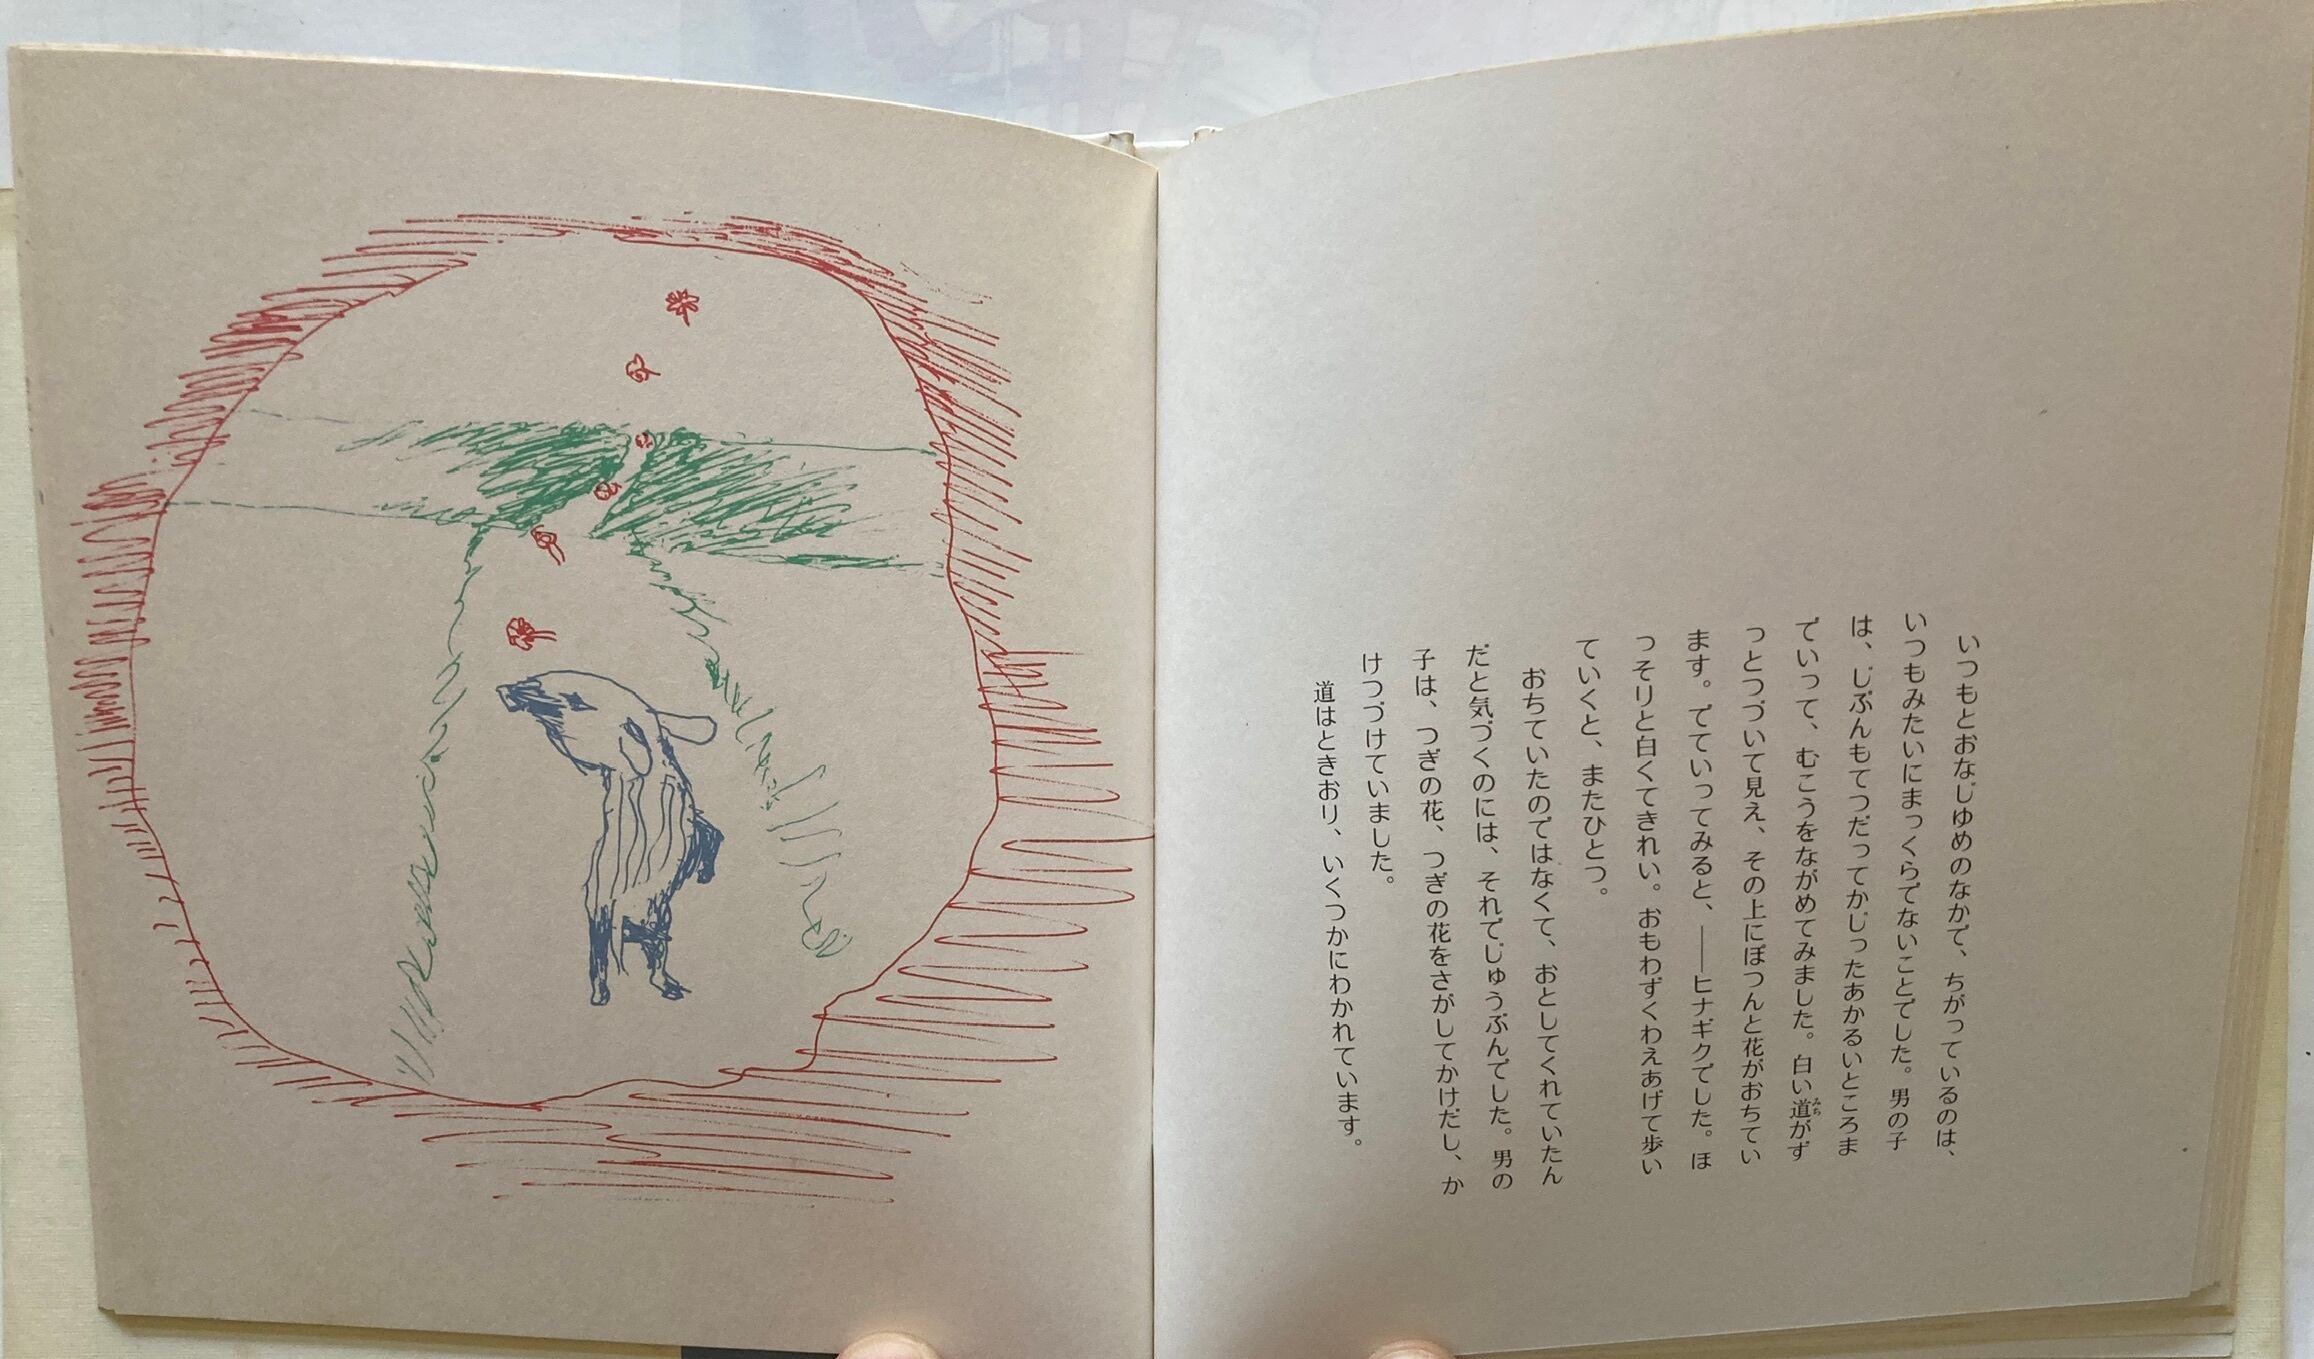 いつもとおなじゆめのなかで、ちがっているのは、
いつもみたいにまっくらでないことでした。男の子
は、じぶんもてつだってかじったあかるいところま
でいって、むこうをながめてみました。白い道がず
みち
っとつづいて見え、その上にぽつんと花がおちてい
ます。でていってみると、――ヒナギクでした。ほ
っそりと白くてきれい。おもわずくわえあげて歩い
ていくと、またひとつ。
おちていたのではなくて、おとしてくれていたん
だと気づくのには、それでじゅうぶんでした。男の
子は、つぎの花、つぎの花をさがしてかけだし、か
けつづけていました。
道はときおり、いくつかにわかれています。